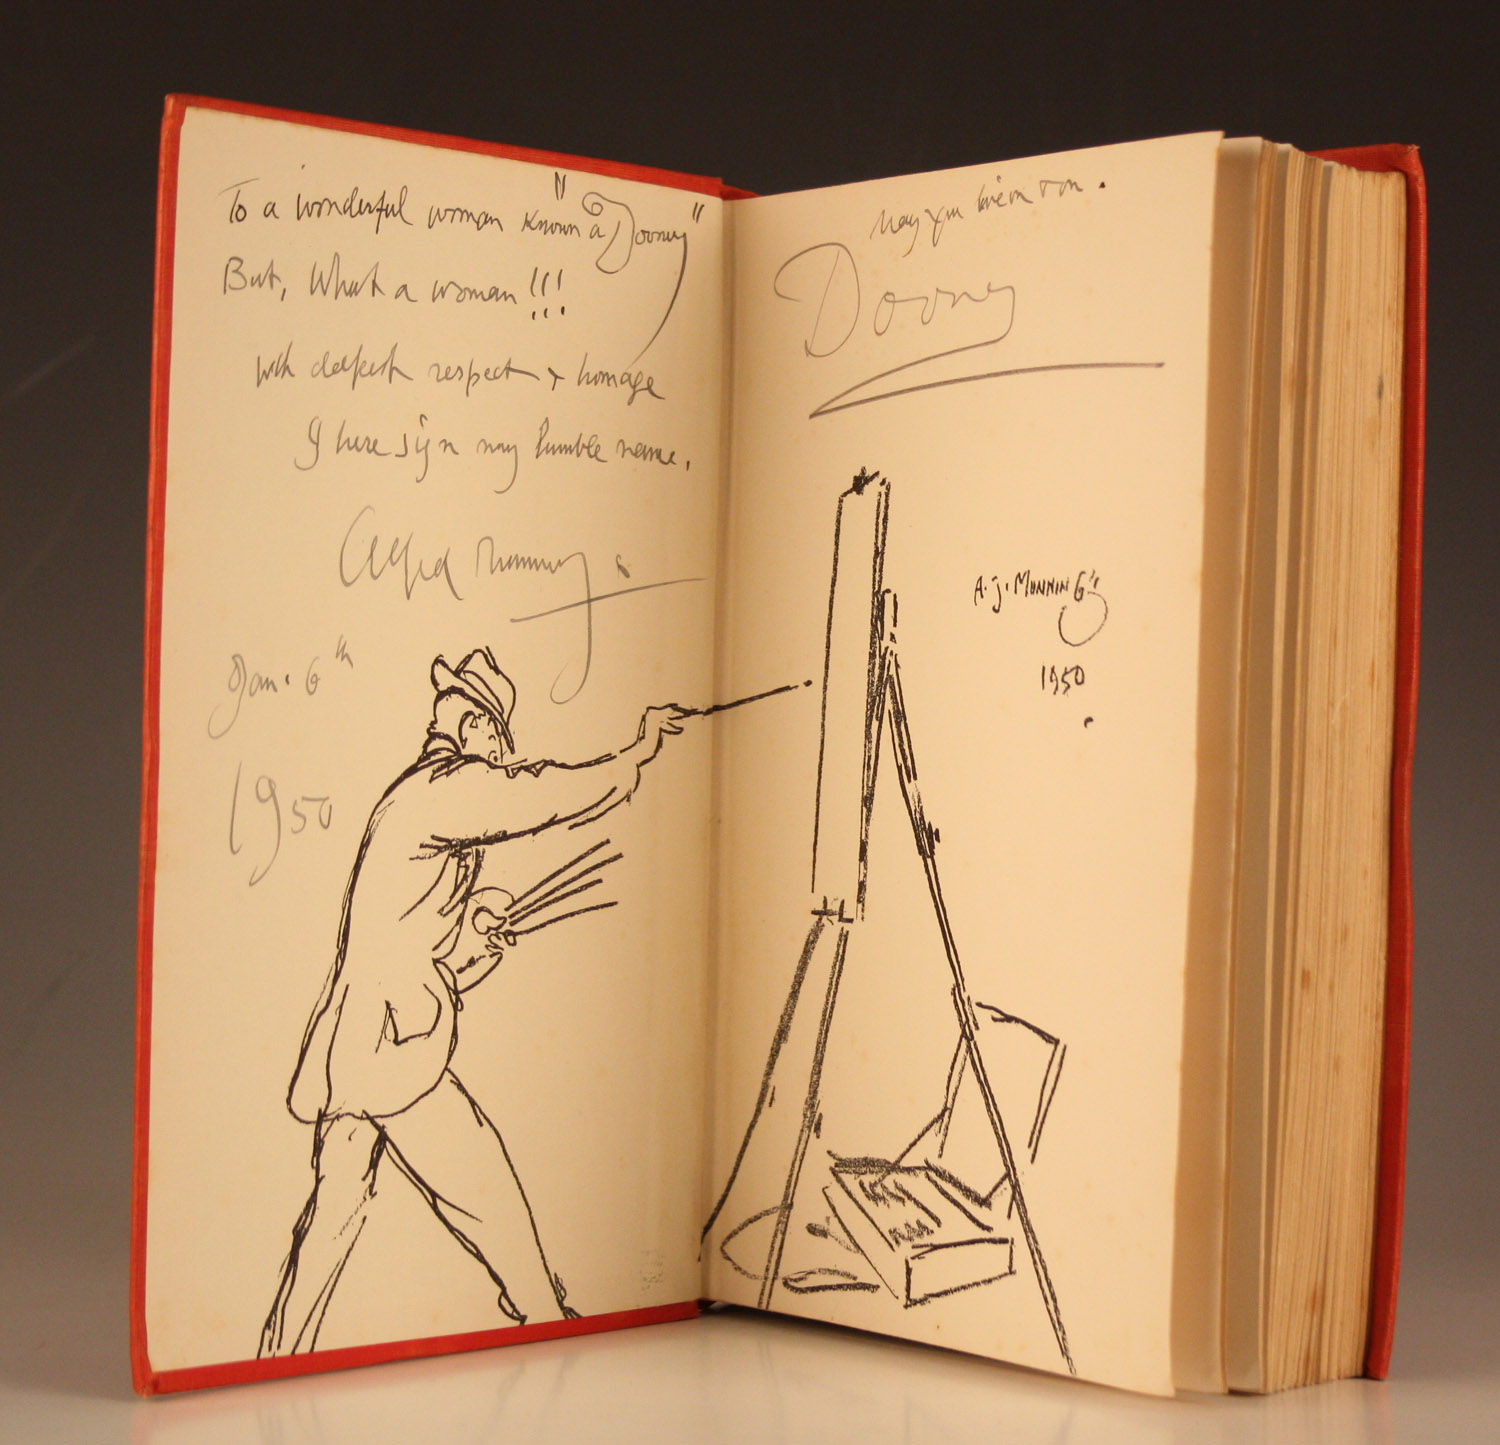 To a wonderful woman known a "Dooney"
But, What a woman !!!
with deepest respect + homage
I here sign my humble name.
Alfred Munnings
Jan. 6th
1950
May you live on & on.
Dooney
A. J. MUNNINGS
1950